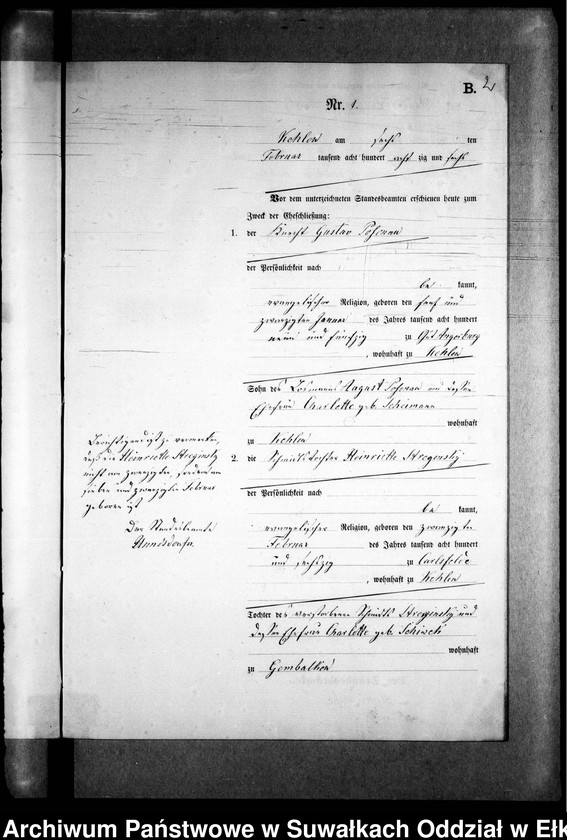 B. 2
Nr. 1.
Kehlen am sechs ten
Februar tausend acht hundert acht zig und sechs
Vor dem unterzeichneten Standesbeamten erschienen heute zum
Zweck der Eheschließung:
1. der Knecht Gustav
der Persönlichkeit nach
be kannt,
evangelischer Religion, geboren den fünf und
zwanzigsten Januar des Jahres tausend acht hundert
neun und fünfzig zu Gut Angerburg
, wohnhaft zu Kehlen
Sohn des Losmanns August und dessen
Ehefrau Charlotte geb. Scheimann
wohnhaft
zu Kehlen
2. die Schmidtstochter Heinriette Streginsky
der Persönlichkeit nach
be kannt,
evangelischer Religion, geboren den zwanzigsten
Februar des Jahres tausend acht hundert
und sechszig zu Carlsfelde
, wohnhaft zu Kehlen
Tochter des verstorbenen Schmidts Streginsky und
dessen Ehefrau Charlotte geb.
wohnhaft
zu Gembalken
Berichtigend ist zu vermerken,
daß die Heinriette Streginsky
nicht am zwanzigsten, sondern am
sieben und zwanzigsten Februar
geboren ist
Der Standesbeamte
Archiwum Państwowe w Suwałkach Oddział w Ełk